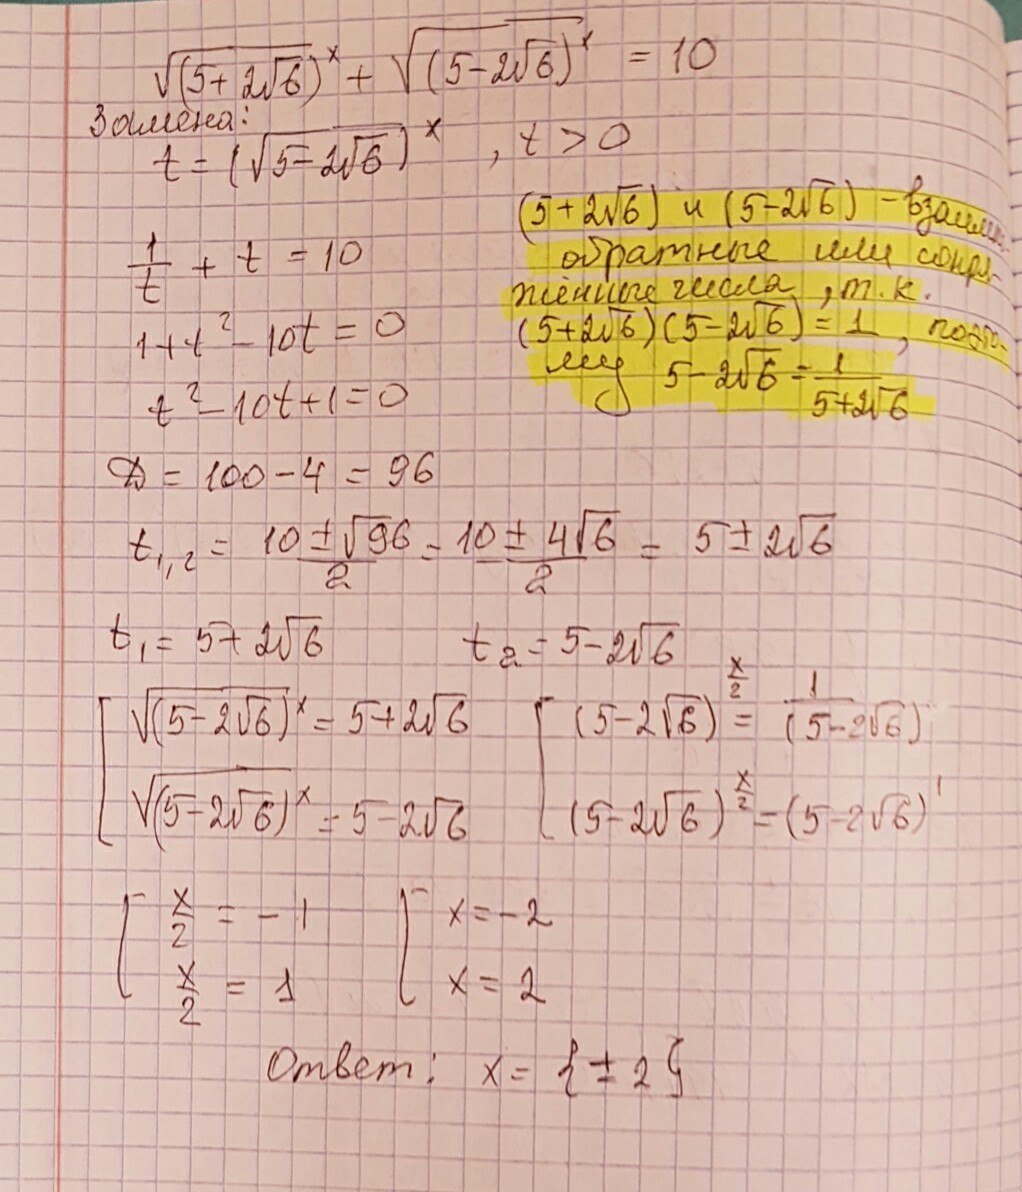 √(5+2√6)^x + √(5-2√6)^x = 10
Замена:
t = (√5-2√6)^x , t > 0
(5+2√6) и (5-2√6) - взаим.
обратные или сопря-
жённые числа, т.к.
(5+2√6)(5-2√6) = 1, поэто-
му 5-2√6 = 1/(5+2√6)
1/t + t = 10
1+t²-10t = 0
t²-10t+1=0
D = 100-4 = 96
t₁,₂ = (10±√96)/2 = (10±4√6)/2 = 5±2√6
t₁ = 5+2√6 t₂ = 5-2√6
[ √(5-2√6)^x = 5+2√6 [ (5-2√6)^(x/2) = 1/(5-2√6)
√(5-2√6)^x = 5-2√6 (5-2√6)^(x/2) = (5-2√6)^1
[ x/2 = -1 [ x = -2
x/2 = 1 x = 2
Ответ: x = {±2}